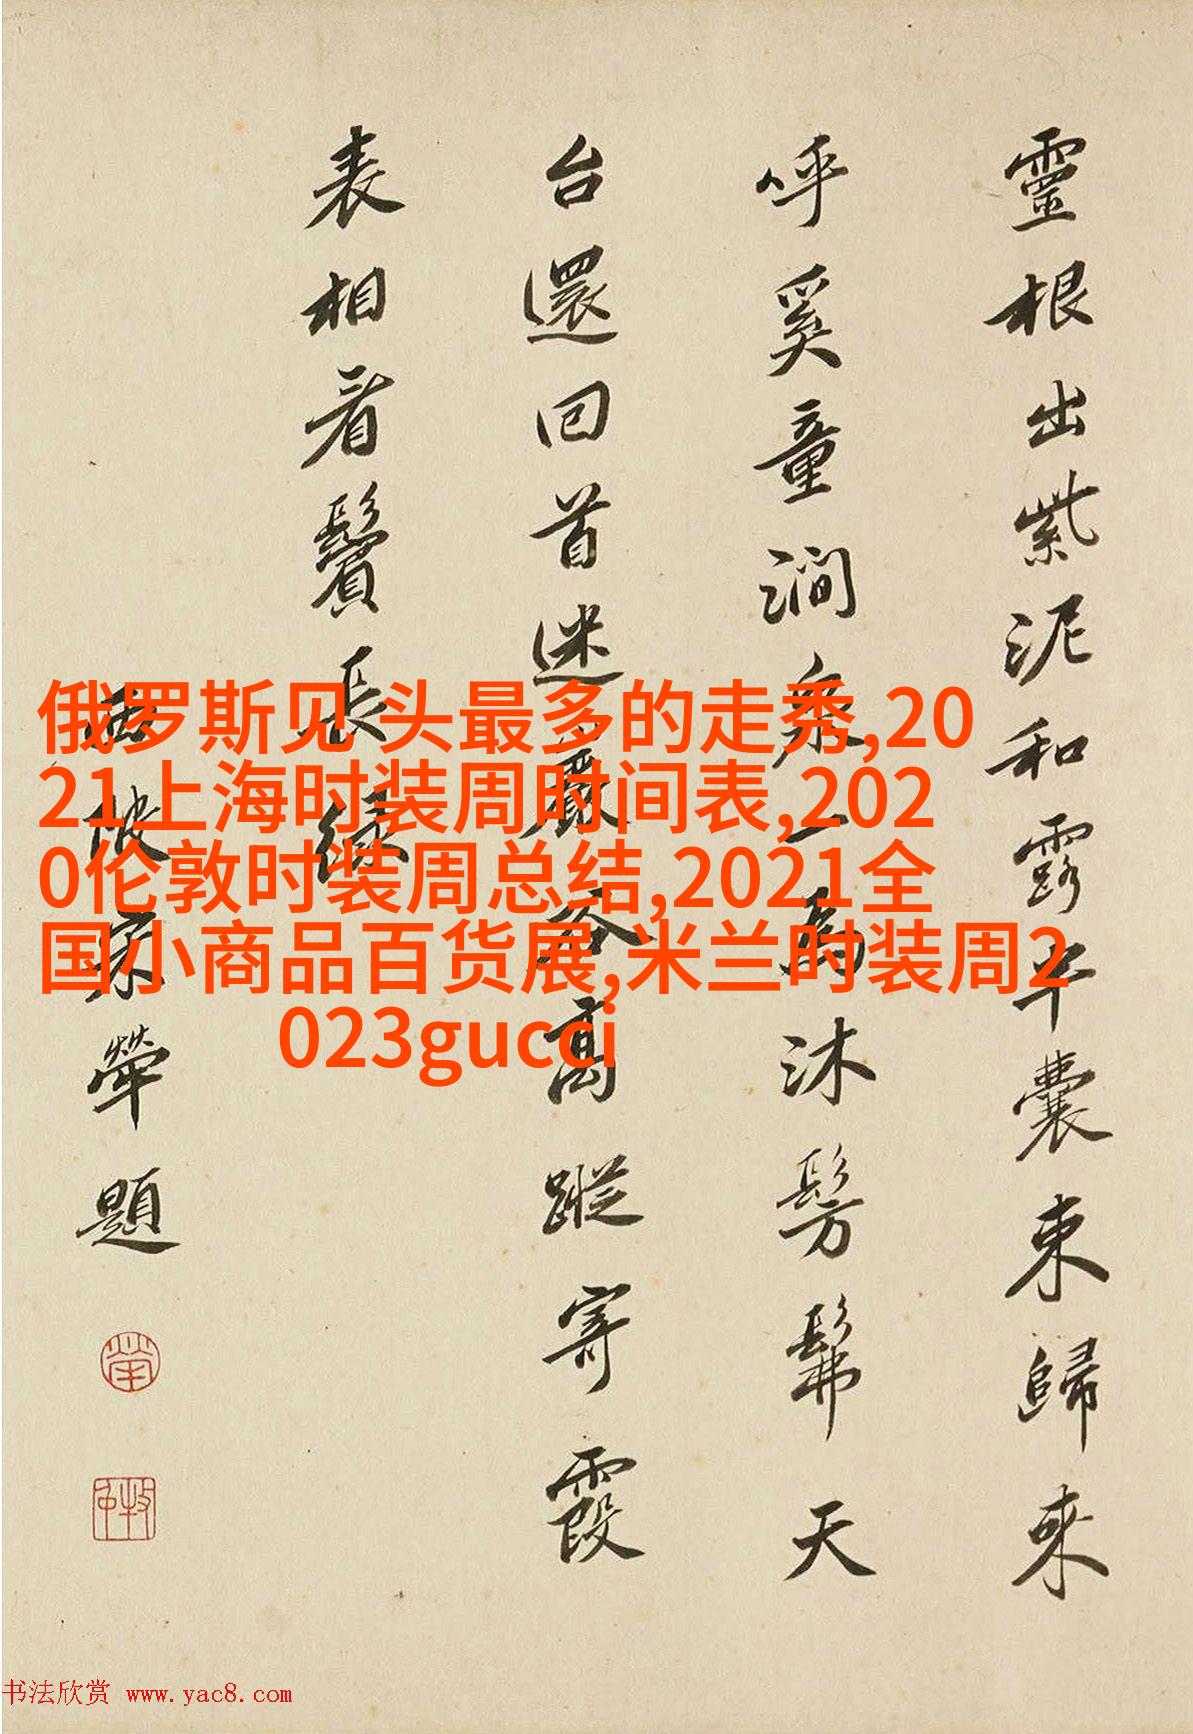 靈根出紫泥和露囊束歸來
呼奚童澗泉一為沐髣髴天
台還回首迷巖谷高蹤寄霞
表相看鬢長綠
西陂宋犖題
犖
牧仲
俄罗斯见 头最多的走秀,20
21上海时装周时间表,202
0伦敦时装周总结,2021全
国小商品百货展,米兰时装周2
023gucci
书法欣赏 www.yac8.com